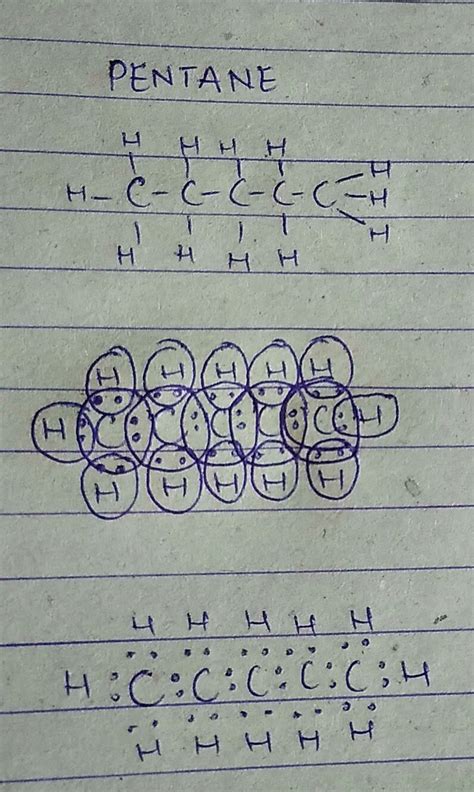 PENTANE
H H H H
H - C - C - C - C - C - H
H
H
H H H H
H H H H H
H C C C C C H
H H H H H
H H H H H
H : C : C : C : C : C : H
H H H H H